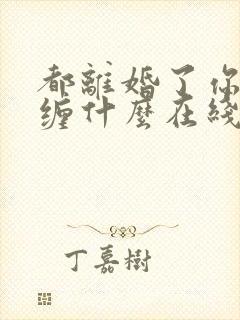 都離婚了你
缠什麼在綫
丁嘉樹